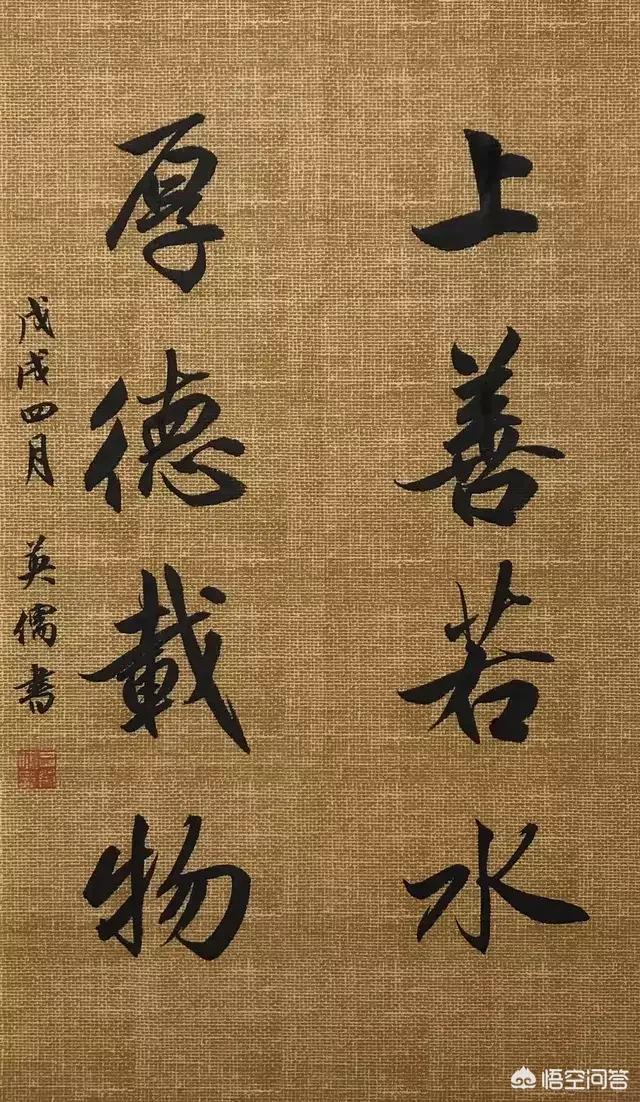 上善若水
厚德載物
戊戌四月 英儒書
悟空问答